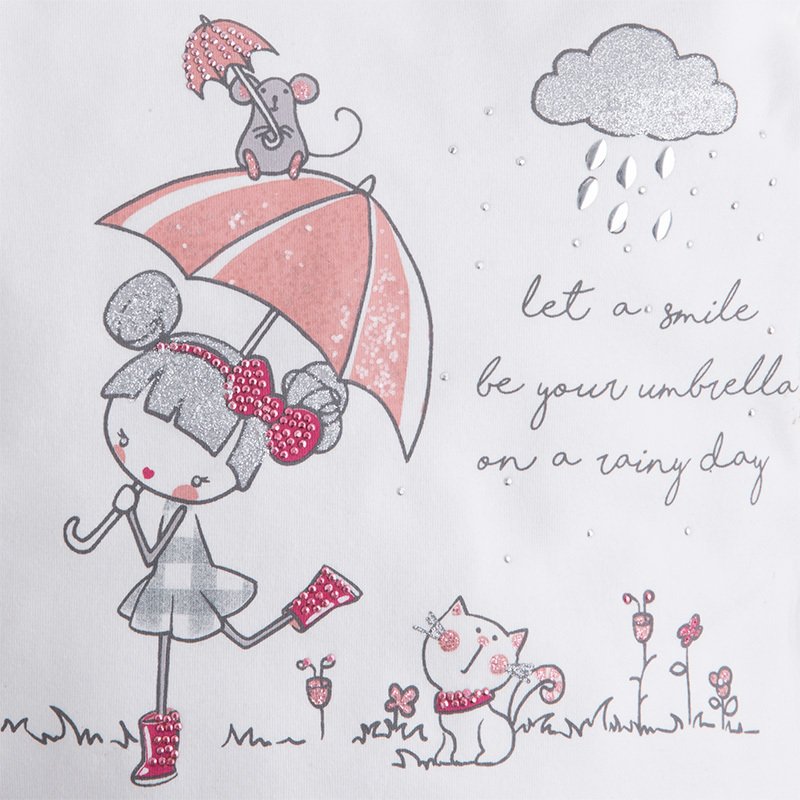 let a smile
be your umbrella
on a rainy day